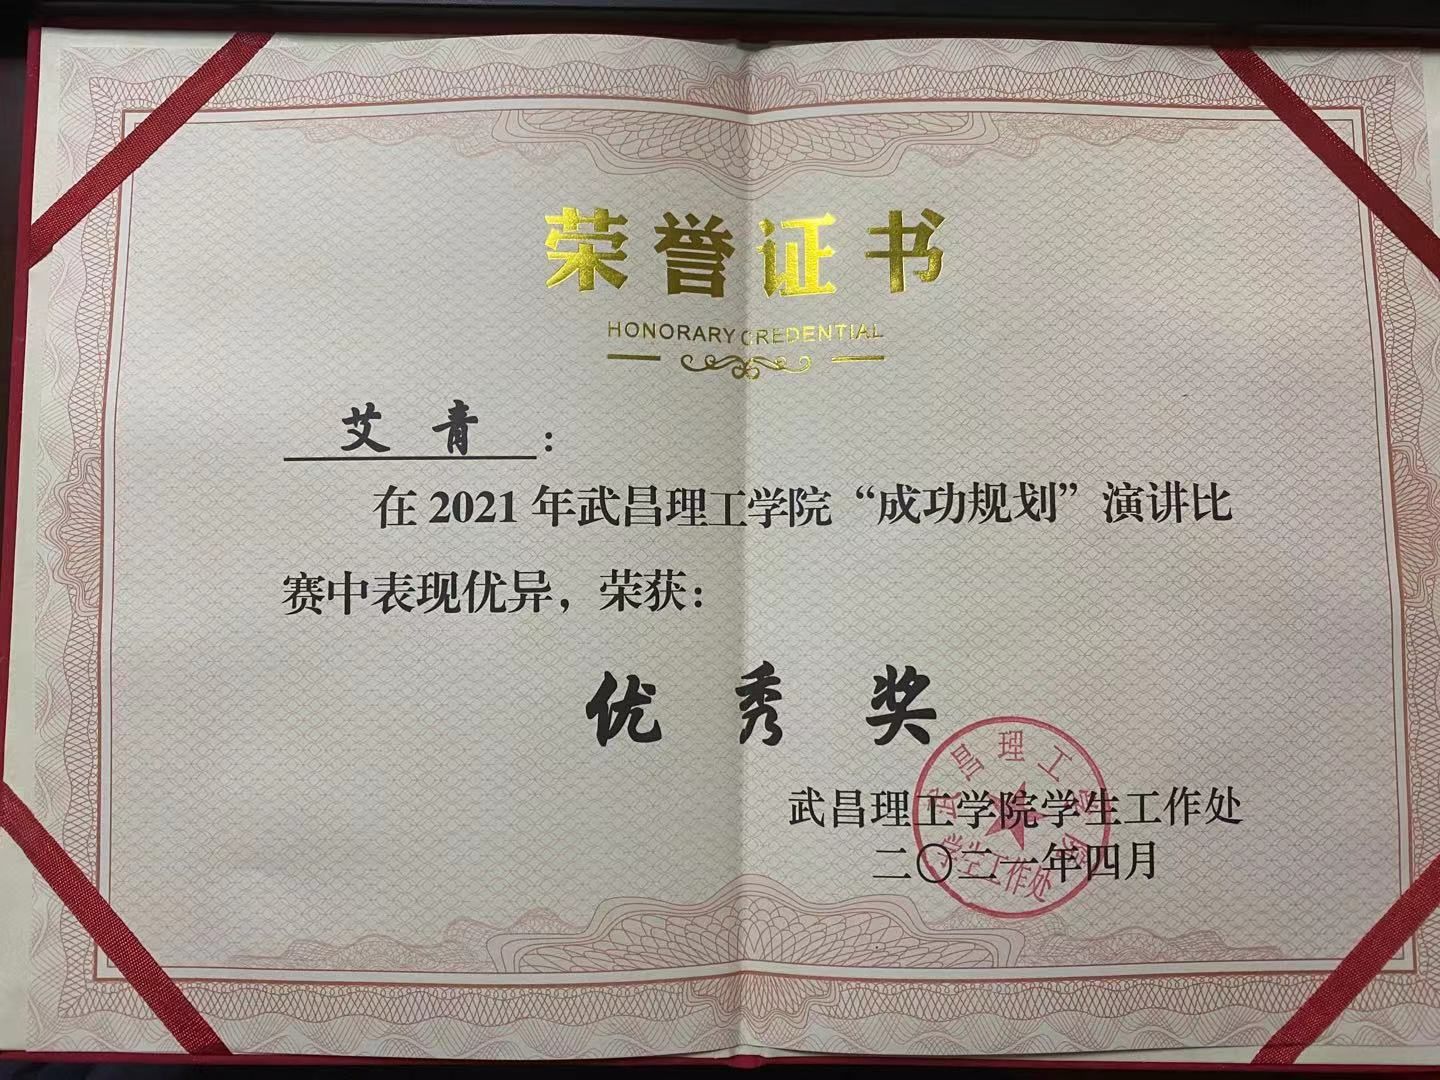 荣誉证书
HONORARY CREDENTIAL
艾青：
在 2021 年武昌理工学院“成功规划”演讲比
赛中表现优异，荣获：
优秀奖
武昌理工学院学生工作处
二〇二一年四月
武昌理工学院
学生工作处